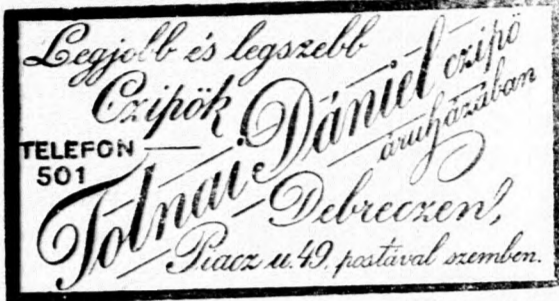 Legjobb és legszebb
Czipők
TELEFON
501
Tolnai Dániel czipő
áruházában
Debreczen,
Piacz u. 49. postával szemben.